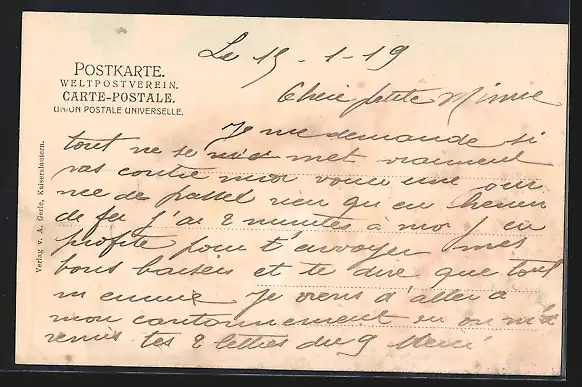 Le 15 - 1 - 19
POSTKARTE.
WELTPOSTVEREIN.
CARTE-POSTALE.
UNION POSTALE UNIVERSELLE.
Verlag v. A. Gerle, Kaiserslautern.
Chère petite Mimie
Je me demande si
tout ne se met vraiment
pas contre moi voici une jour
née de passée rien qu'en chemin
de fer j'ai 2 minutes à moi j'en
profite pour t'envoyer mes
bons baisers et te dire que tout
m'ennuie Je viens d'aller à
mon cantonnement où on m'a
remis tes 2 lettres du 9 Merci